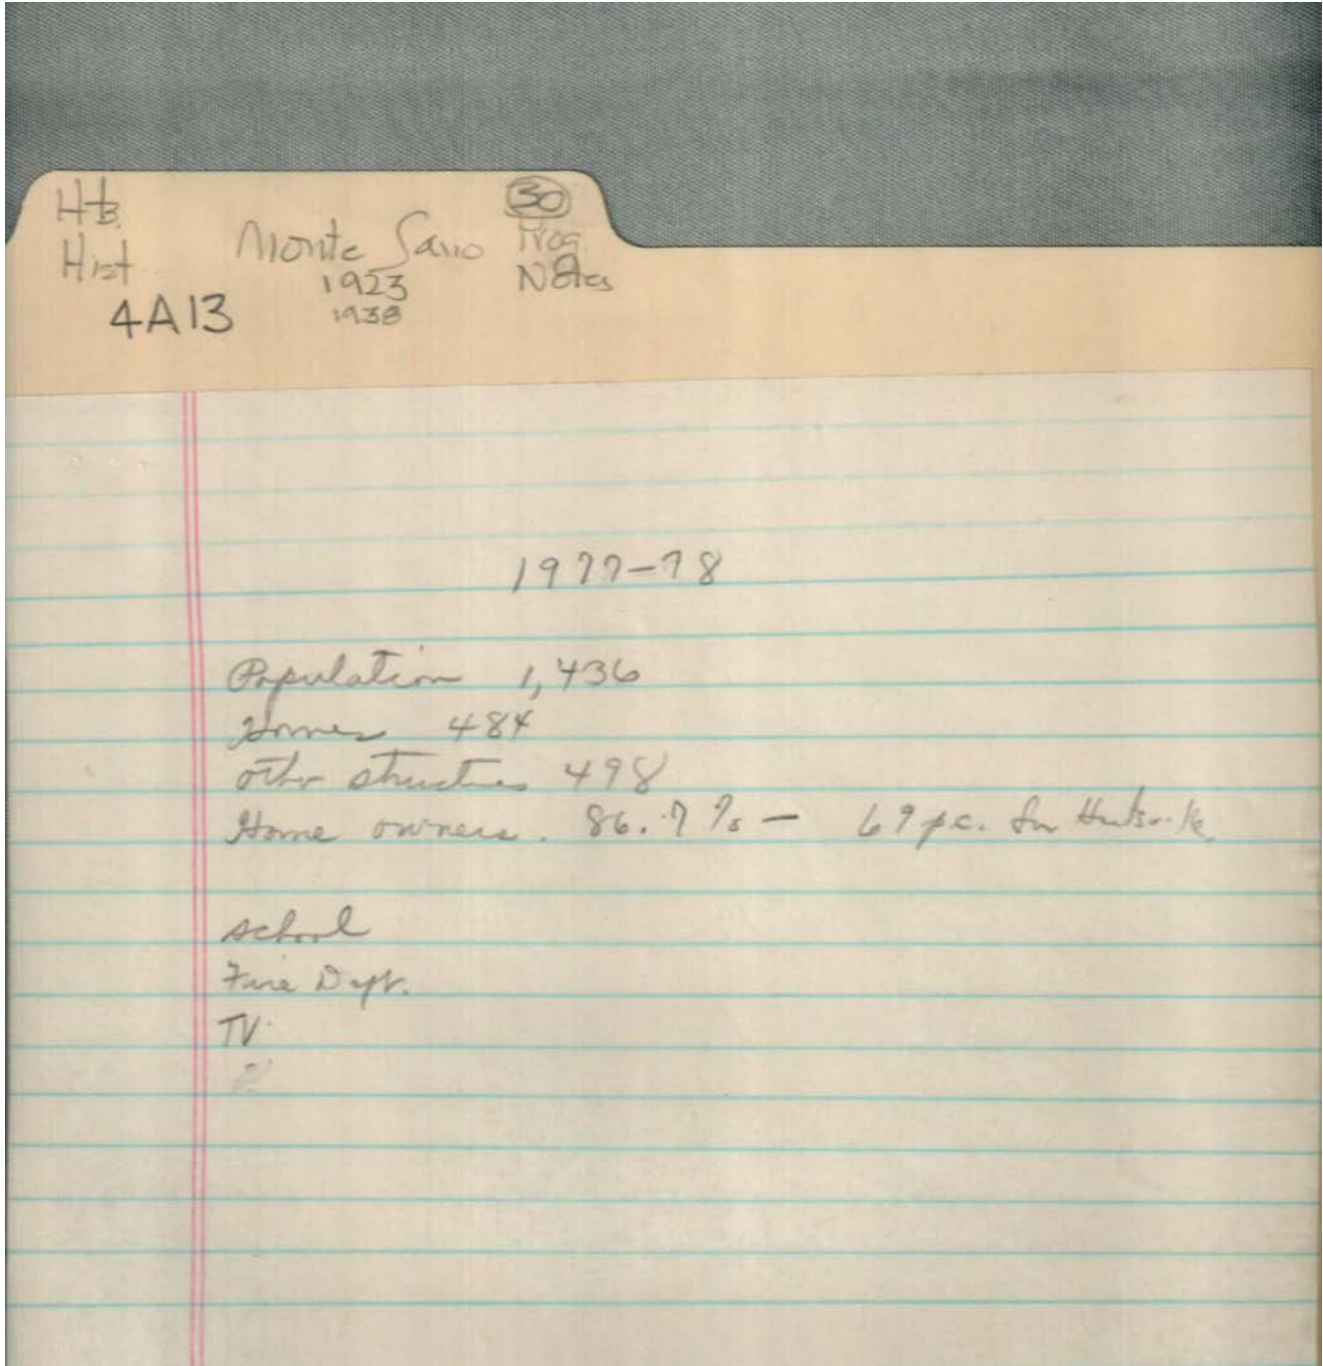 Hist
Monte Sano
1923
1938
30
Prog
Notes
4A13
1977-78
Population 1,436
Homes 484
other structures 498
Home owners. 86.7 % — 69 p.c. for Huntsville
school
Fire Dept.
TV